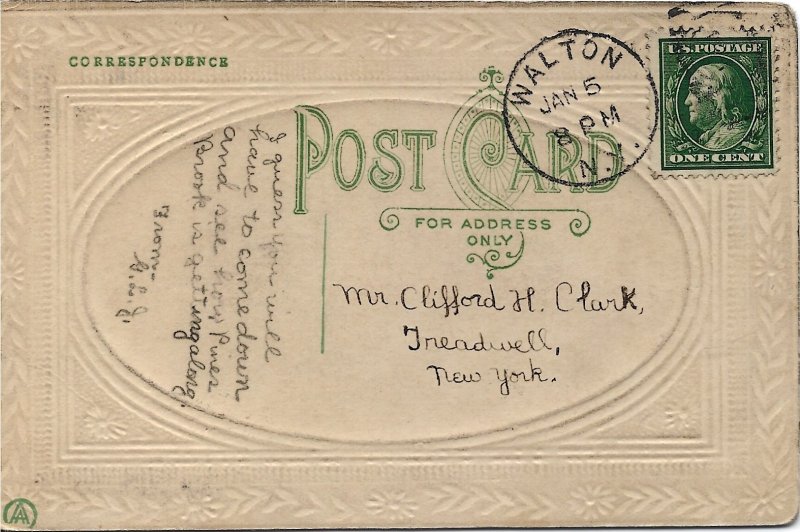 CORRESPONDENCE
POST CARD
FOR ADDRESS
ONLY
WALTON
JAN 5
8 PM
N.Y.
U.S. POSTAGE
ONE CENT
I guess you will
have to come down
and see how Pines
Brook is getting along.
From-
G.L.J.
Mr. Clifford H. Clark,
Treadwell,
New York.